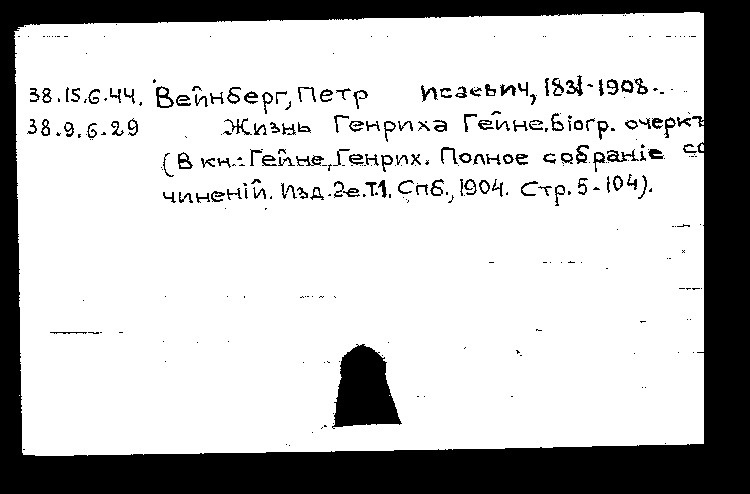 38.15.6.44. Вейнберг, Петр Исаевич, 1831-1908.
38.9.6.29 Жизнь Генриха Гейне. Бiогр. очеркъ
(В кн.: Гейне, Генрих. Полное собранiе со
чиненiй. Изд. 2е. Т.1. Спб., 1904. Стр. 5-104).